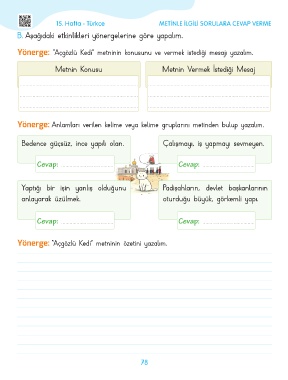 15. Hafta - Türkçe
METİNLE İLGİLİ SORULARA CEVAP VERME
B. Aşağıdaki etkinlikleri yönergelerine göre yapalım.
Yönerge: "Açgözlü Kedi" metninin konusunu ve vermek istediği mesajı yazalım.
Metnin Konusu
Metnin Vermek İstediği Mesaj
Yönerge: Anlamları verilen kelime veya kelime gruplarını metinden bulup yazalım.
Bedence güçsüz, ince yapılı olan.
Cevap:
Çalışmayı, iş yapmayı sevmeyen.
Cevap:
Yaptığı bir işin yanlış olduğunu
anlayarak üzülmek.
Cevap:
Padişahların, devlet başkanlarının
oturduğu büyük, görkemli yapı.
Cevap:
Yönerge: "Açgözlü Kedi" metninin özetini yazalım.
78